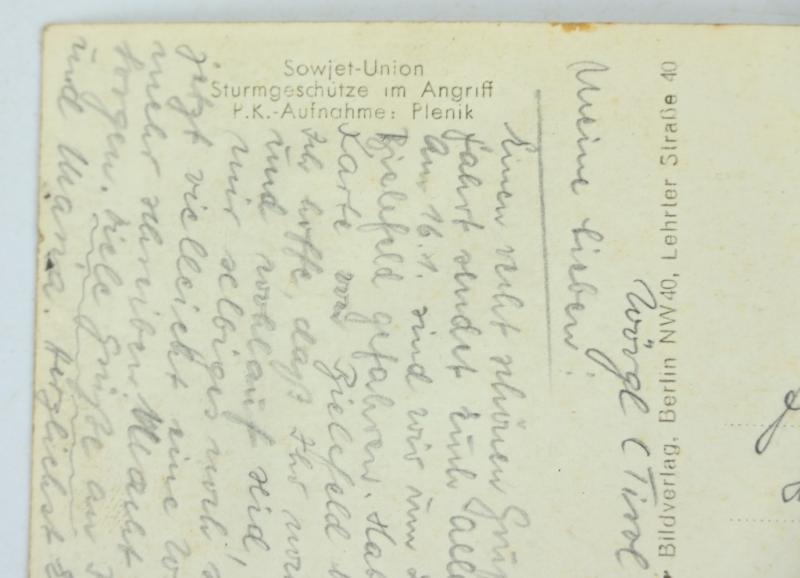 Sowjet-Union
Sturmgeschütze im Angriff
P.K.-Aufnahme: Plenik
Bildverlag, Berlin NW 40, Lehrter Straße 40
Wörgl (Tirol
Meine Lieben!
Einen recht schönen
Fahrt sendet Euch
Am 16.1. sind wir um
Bielefeld gefahren.
Karte von Bielefeld
Ich hoffe, daß Ihr
und wohlauf seid,
mir selbiges noch
jetzt vielleicht eine
mehr schreiben. Macht
sorgen. Viele Grüße an
und Maria. Herzlichst